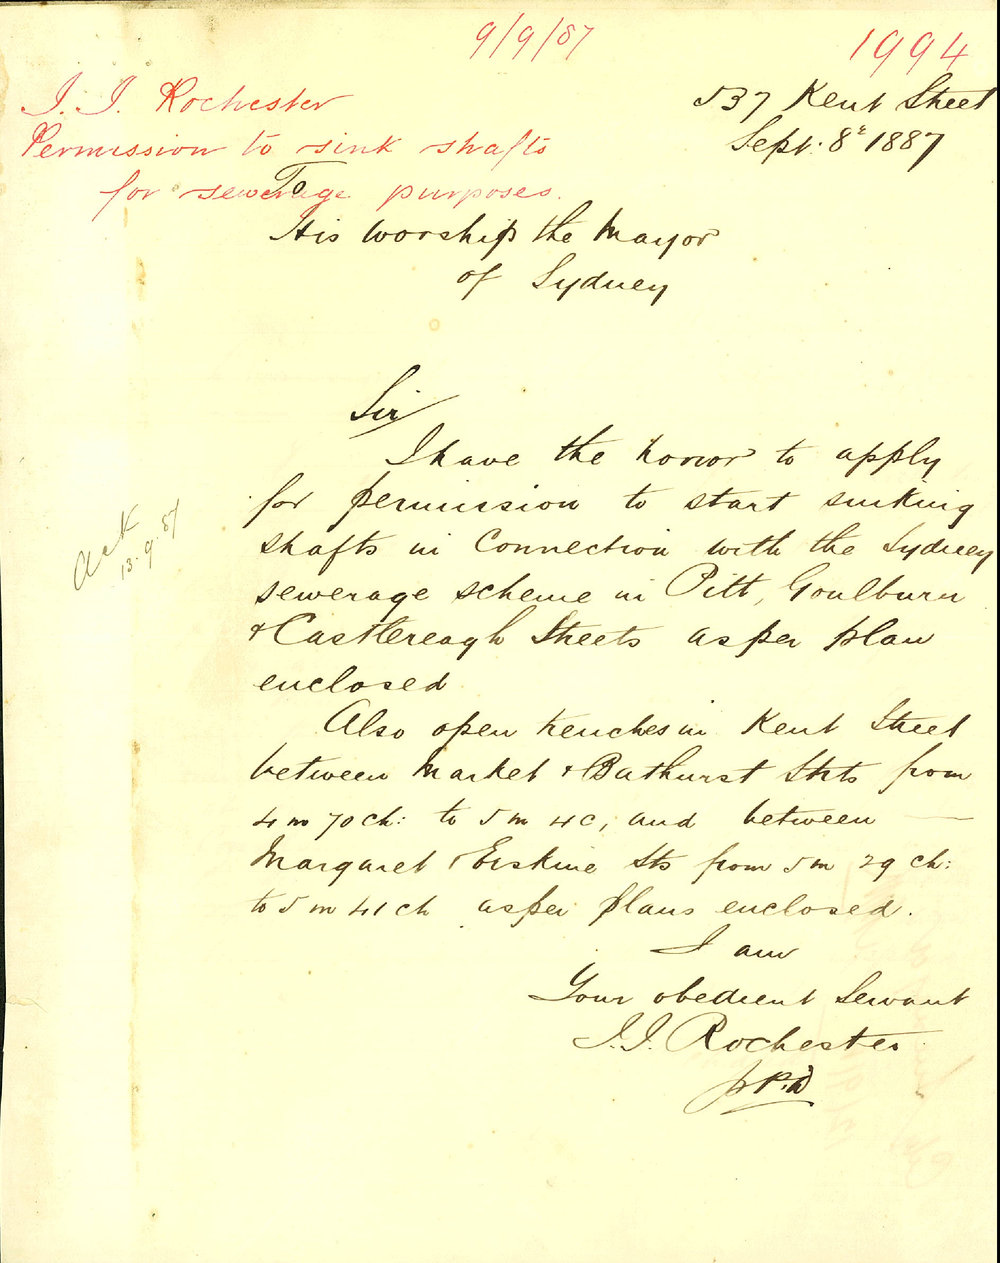 9/9/87
1994
J. J. Rochester
Permission to sink shafts
for sewerage purposes.
537 Kent Street
Sept. 8th 1887
To
His Worship the Mayor
of Sydney
Sir
I have the honor to apply
for permission to start sinking
shafts in Connection with the Sydney
sewerage scheme in Pitt, Goulburn
& Castlereagh Streets as per plan
enclosed
Ack
13.9.87
Also open trenches in Kent Street
between Market & Bathurst Strts from
4 m 70 ch: to 5 m 4 c, and between
Margaret & Erskine Sts from 5 m 29 ch:
to 5 m 41 ch as per plans enclosed.
I am
Your obedient Servant
J. J. Rochester